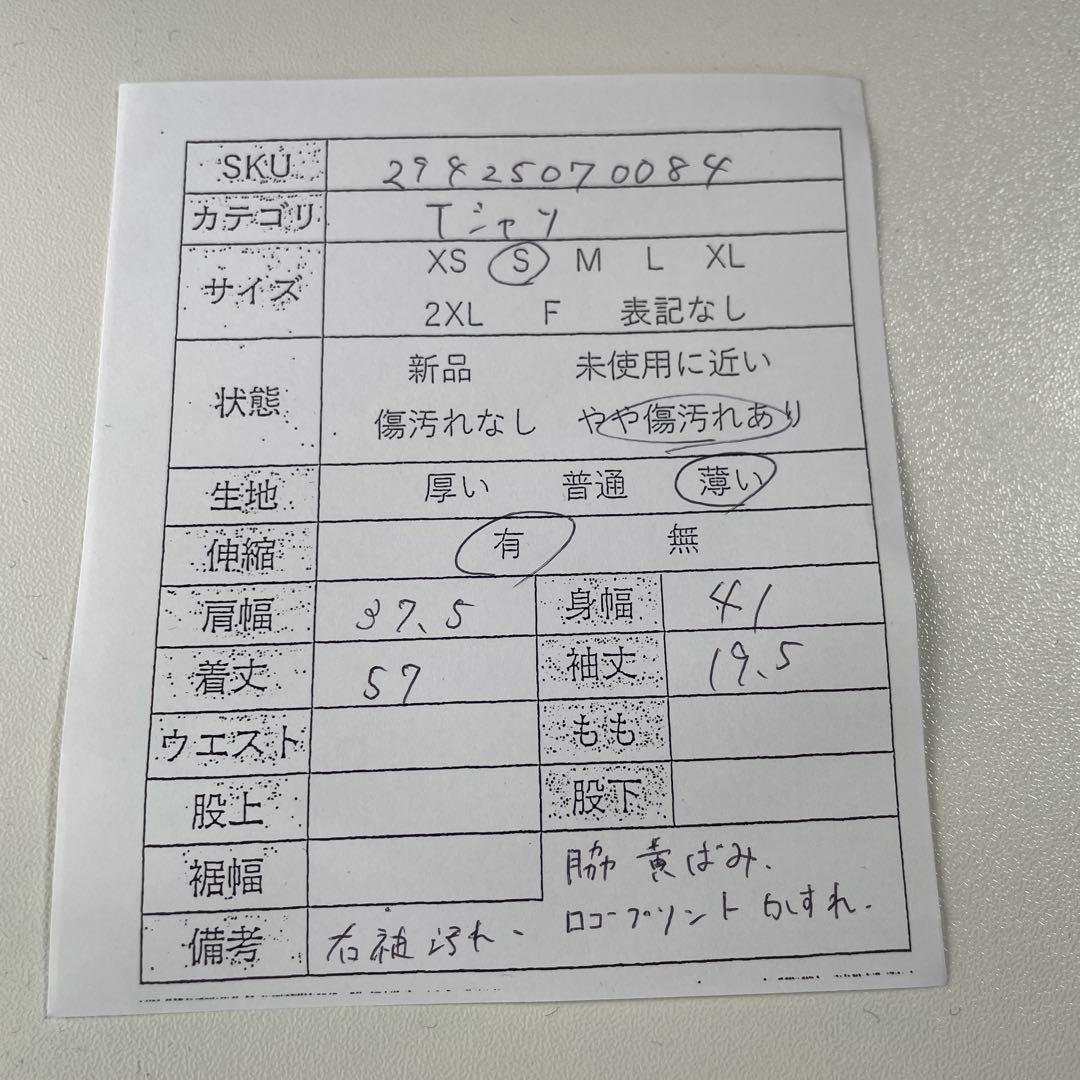 SKU 29425070084
カテゴリ Tシャツ
サイズ XS S M L XL
2XL F 表記なし
状態 新品 未使用に近い
傷汚れなし やや傷汚れあり
生地 厚い 普通 薄い
伸縮 有 無
肩幅 37.5 身幅 41
着丈 57 袖丈 19.5
ウエスト もも
股上 股下
裾幅 脇 黄ばみ、
備考 右袖汚れ、 ロゴープリントかすれ、